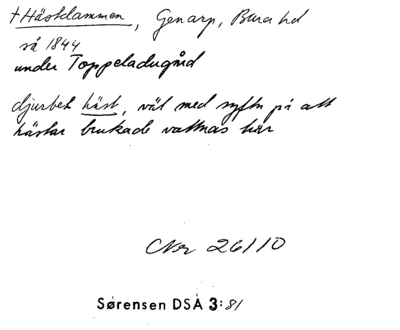 † Hästdammen, Genarp, Bara hd
så 1844
under Toppeladugård
djurbet häst, väl med syfte på att
hästar brukade vattnas här
CNr 26110
Sørensen DSÅ 3:81